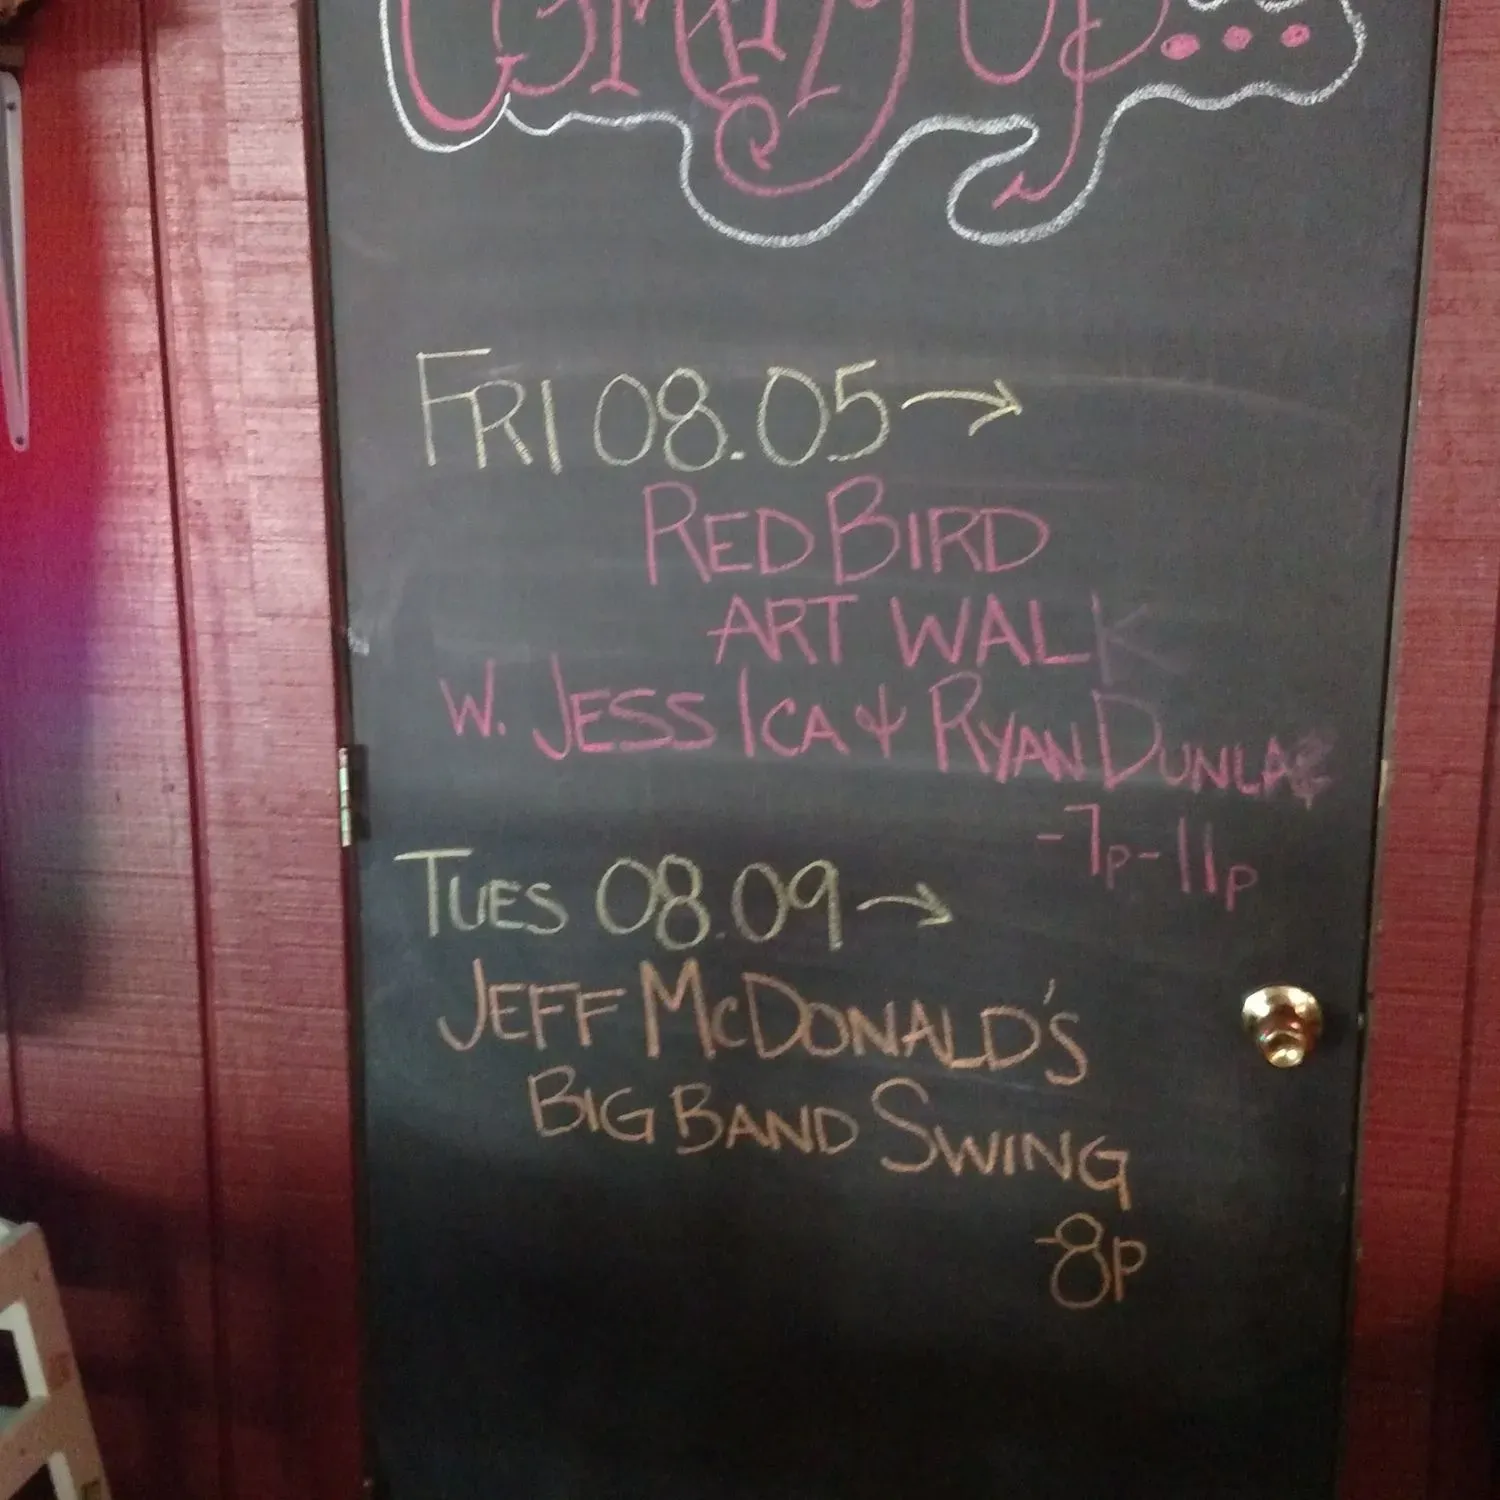 Coming Up...
FRI 08.05 →
RED BIRD
ART WALK
W. JESSICA & RYAN DUNLAP
-7P-11P
TUES 08.09 →
JEFF McDONALD'S
BIG BAND SWING
-8P